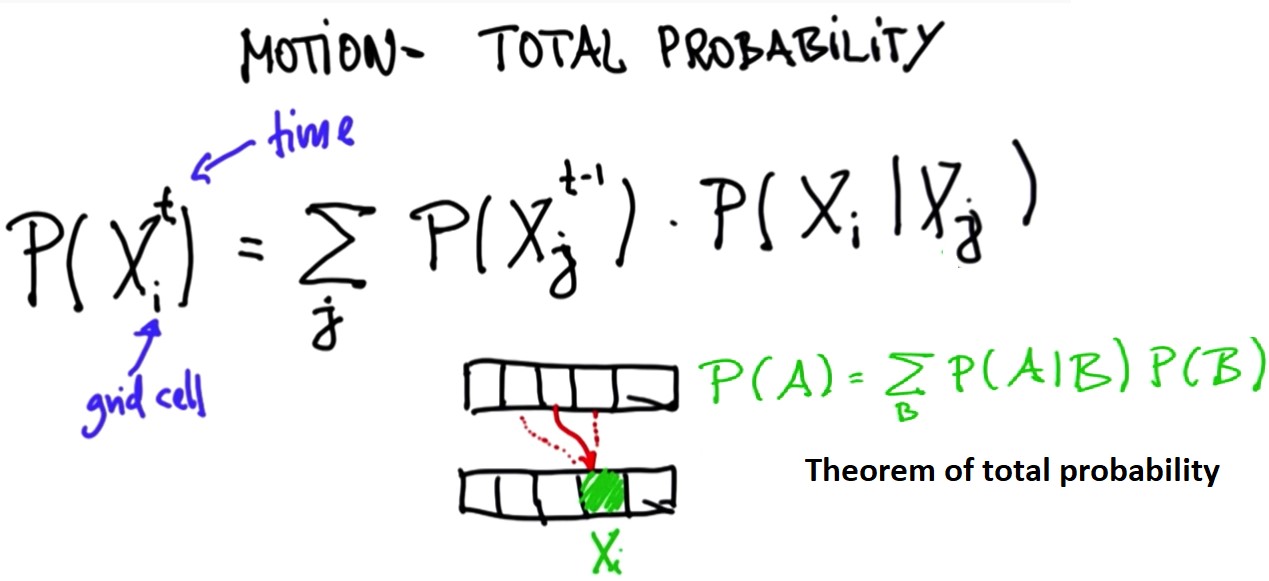 MOTION- TOTAL PROBABILITY
time
P(Xᵢᵗ) = Σⱼ P(Xⱼᵗ⁻¹) · P(Xᵢ | Xⱼ)
grid cell
P(A) = Σ_B P(A|B) P(B)
Theorem of total probability
Xᵢ